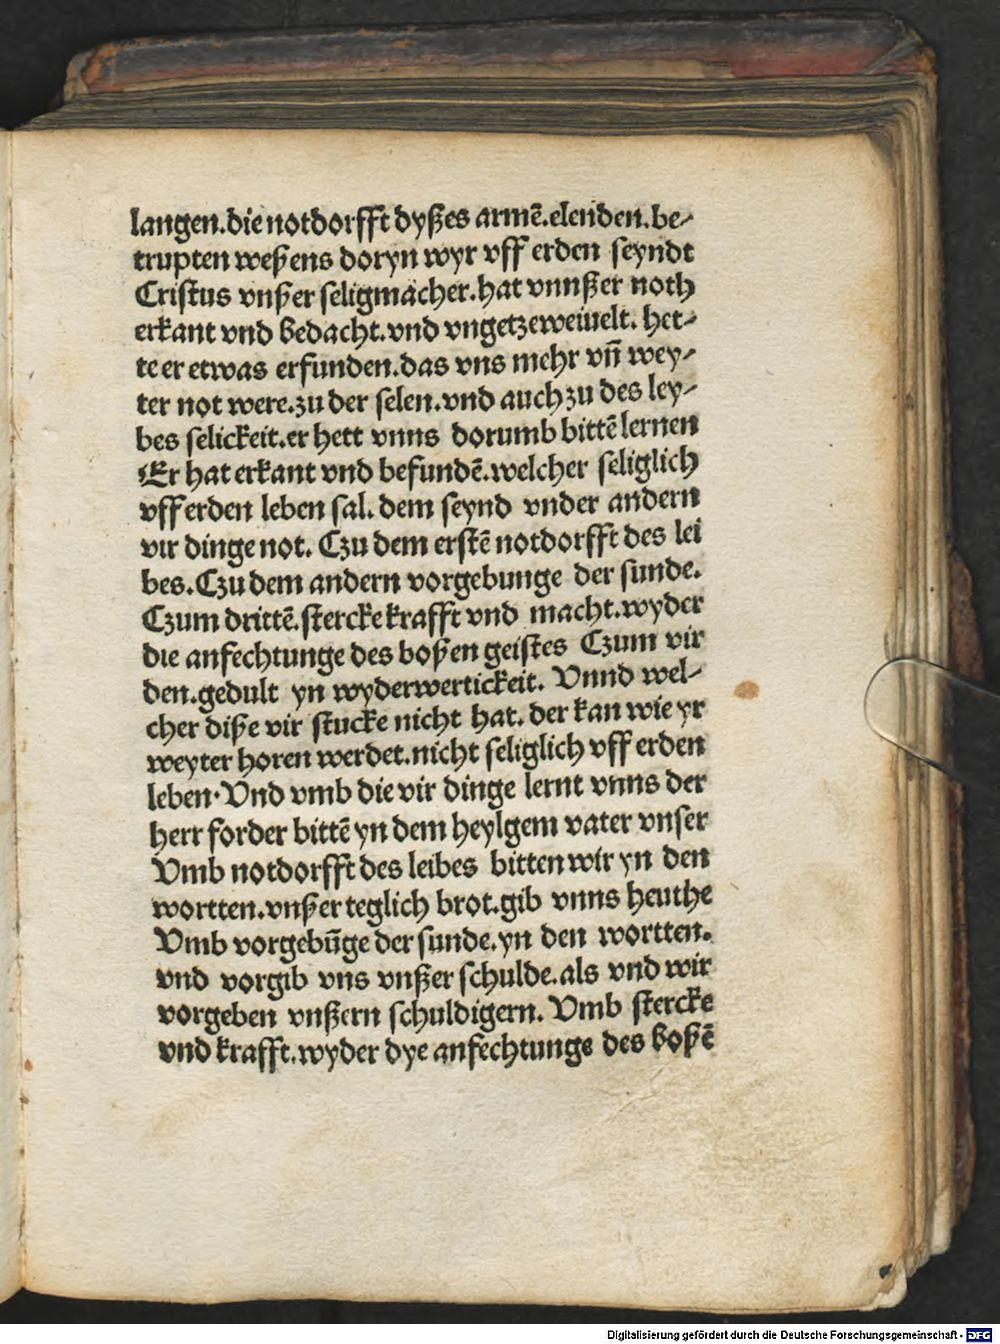 langen.die notdorfft dyßes armē.elenden.be⸗
trupten weßens doryn wyr vff erden seyndt
Cristus vnßer seligmacher.hat vnnßer noth
erkant vnd bedacht.vnd vngetzeweiuelt. het⸗
te er etwas erfunden.das vns mehr vn̄ wey⸗
ter not were.zu der selen.vnd auch zu des ley⸗
bes selickeit.er hett vnns dorumb bittē lernen
Er hat erkant vnd befundē.welcher seliglich
vff erden leben sal. dem seynd vnder andern
vir dinge not. Czu dem erstē notdorfft des lei
bes.Czu dem andern vorgebunge der sunde.
Czum drittē.stercke krafft vnd macht.wyder
die anfechtunge des boßen geistes Czum vir
den.gedult yn wyderwertickeit. Vnnd wel⸗
cher diße vir stucke nicht hat. der kan wie yr
weyter horen werdet.nicht seliglich vff erden
leben·Vnd vmb die vir dinge lernt vnns der
herr forder bittē yn dem heylgem vater vnser
Vmb notdorfft des leibes bitten wir yn den
wortten.vnßer teglich brot.gib vnns heuthe
Vmb vorgebūge der sunde.yn den wortten.
vnd vorgib vns vnßer schulde.als vnd wir
vorgeben vnßern schuldigern. Vmb stercke
vnd krafft.wyder dye anfechtunge des boßē
Digitalisierung gefördert durch die Deutsche Forschungsgemeinschaft - DFG